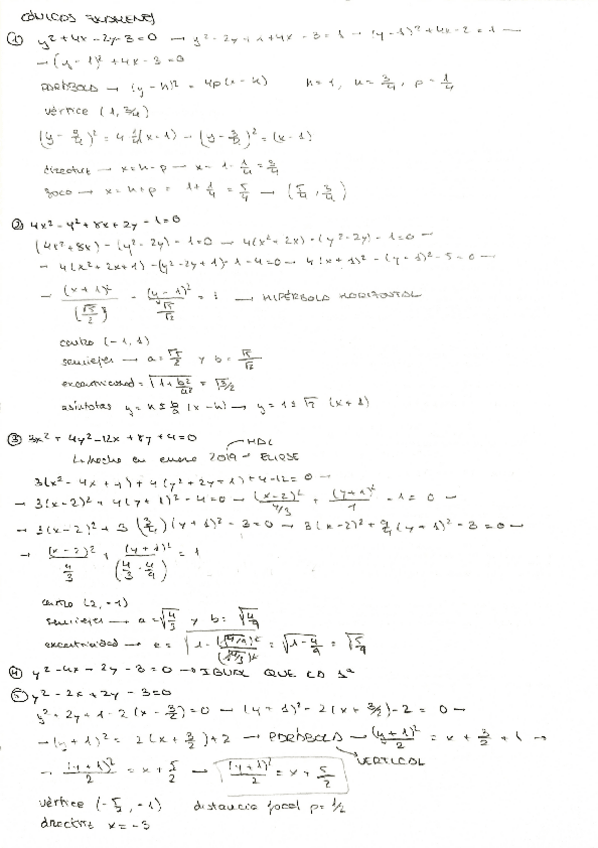 CÓNICAS EXÁMENES
① y² + 4x - 2y - 3 = 0 → y² - 2y + 1 + 4x - 3 = 1 → (y - 1)² + 4x - 3 = 1 →
→ (y - 1)² + 4x - 3 = 0
PARÁBOLA → (y - k)² = 4p(x - h)   h = 1, k = 3/4, p = 1/4
vértice (1, 3/4)
(y - 3/4)² = 4 1/4 (x - 1) → (y - 3/4)² = (x - 1)
directriz → x = h - p → x = 1 - 1/4 = 3/4
foco → x = h + p = 1 + 1/4 = 5/4 → (5/4, 3/4)
② 4x² - y² + 8x + 2y - 1 = 0
(4x² + 8x) - (y² - 2y) - 1 = 0 → 4(x² + 2x) - (y² - 2y) - 1 = 0 →
→ 4(x² + 2x + 1) - (y² - 2y + 1) - 1 - 4 = 0 → 4(x + 1)² - (y - 1)² - 5 = 0 →
→ HIPÉRBOLA HORIZONTAL
centro (-1, 1)
semiejes → a = √5/2 y b = √5/√2
excentricidad = √(1 + b²/a²) = √3/2
asíntotas y = k ± b/a (x - h) → y = 1 ± √2 (x + 1)
③ 3x² + 4y² - 12x + 8y + 4 = 0
→ hecho en enero 2019 → ELIPSE
3(x² - 4x + 4) + 4(y² + 2y + 1) + 4 - 12 = 0 →
→ 3(x - 2)² + 4(y + 1)² - 4 = 0 → (x - 2)²/(4/3) + (y + 1)²/1 - 1 = 0 →
→ (x - 2)²/(4/3) + (y + 1)²/(4/3 · 4/9) = 1
centro (2, -1)
semiejes → a = √4/3 y b = √4/9
excentricidad → e = = √(1 - 4/9) = √5/9
④ y² - 4x - 2y - 3 = 0 → IGUAL QUE LA 1ª
⑤ y² - 2x + 2y - 3 = 0
y² + 2y + 1 - 2(x - 3/2) = 0 → (y + 1)² - 2(x + 3/2) - 2 = 0 →
→ (y + 1)² = 2(x + 3/2) + 2 → PARÁBOLA → (y + 1)²/2 = x + 3/2 + 1 →
VERTICAL
→ (y + 1)²/2 = x + 5/2 → (y + 1)²/2 = x + 5/2
vértice (-5/2, -1)   distancia focal p = 1/2
directriz x = -3